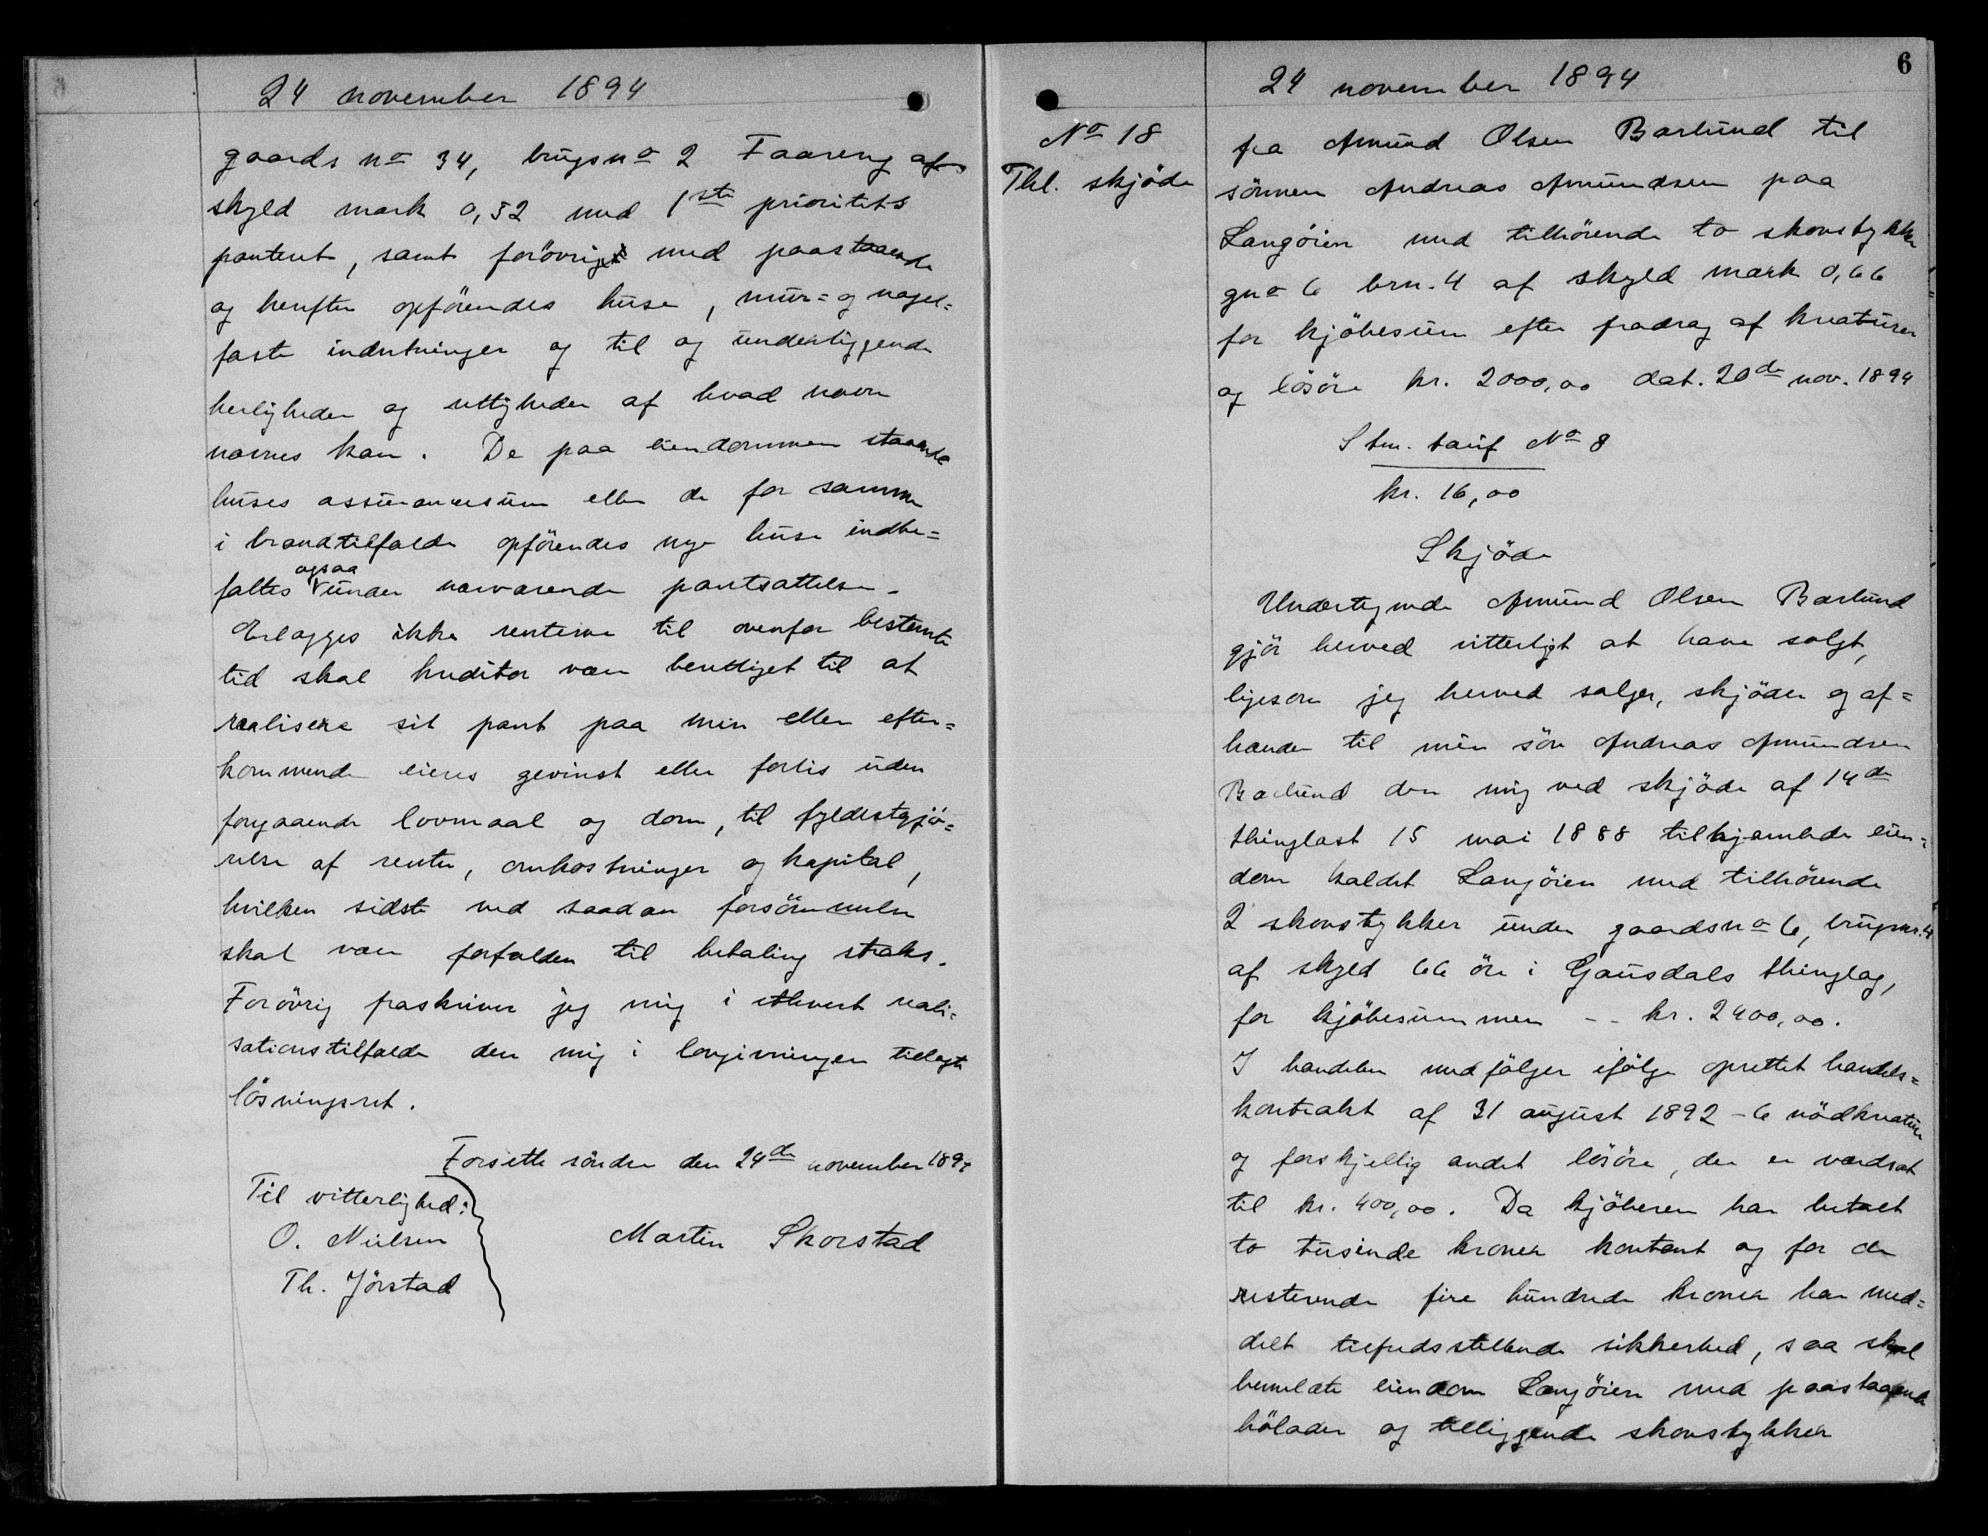 24 november 1894
gaards no 34, brugsno 2 Faareng af
skyld mark 0,52 med 1ste prioritets
panteret, samt forövrigt med paastaaende
og herefter opförendes huse, mur= og nagel=
faste indretninger og til og underliggende
herligheder og rettigheder af hvad navn
nævnes kan. De paa eiendommen staaende
huses assurancesum eller de for samme
i brandtilfælde opförendes nye huse indbe=
fattes ogsaa under nærværende pantsættelse.
Erlægges ikke renterne til ovenfor bestemte
tid skal kreditor være berettiget til at
realisere sit pant paa min eller efter=
kommende eieres gevinst eller forlis uden
forgaaende lovmaal og dom, til fyldestgjö=
relse af renter, omkostninger og kapital,
hvilken sidste ved saadan forsömmelse
skal være forfalden til betaling straks.
Forövrig fraskriver jeg mig i ethvert reali=
sationstilfælde den mig i lovgivningen tillagte
lösningsret.
Forsette söndre den 24de november 1894
Til vitterlighed:
O. Nielsen
Martin Skorstad
Th. Jörstad
6
24 november 1894
No 18
Thl. skjöde
fra Amund Olsen Bærlund til
sönnen Andreas Amundsen paa
Langöien med tilhörende to skovstykker
gno 6 brn. 4 af skyld mark 0,66
for kjöbesum efter fradrag af kreaturer
og lösöre kr. 2000,00 dat. 20de nov. 1894
Stm. tarif No 8
kr. 16,00
Skjöde
Undertegnede Amund Olsen Bærlund
gjör herved vitterligt at have solgt,
ligesom jeg herved sælger, skjöder og af=
hænder til min sön Andreas Amundsen
Bærlund den mig ved skjöde af 14de
thinglæst 15 mai 1888 tilhjemlede eien=
dom kaldet Langöien med tilhörende
2 skovstykker under gaardsno 6, brugsnr. 4
af skyld 66 öre i Gausdals thinglag,
for kjöbesummen -- kr. 2400,00.
I handelen medfölger ifölge oprettet handels=
kontrakt af 31 august 1892 - 6 nödkreature
og forskjellig andet lösöre, der er værdsat
til kr. 400,00. Da kjöberen har betalt
to tusinde kroner kontant og for de
resterende fire hundrede kroner har med=
delt tilfredsstillende sikkerhed, saa skal
bemeldte eiendom Langöien med paastaaende
hölader og tilliggende skovstykker